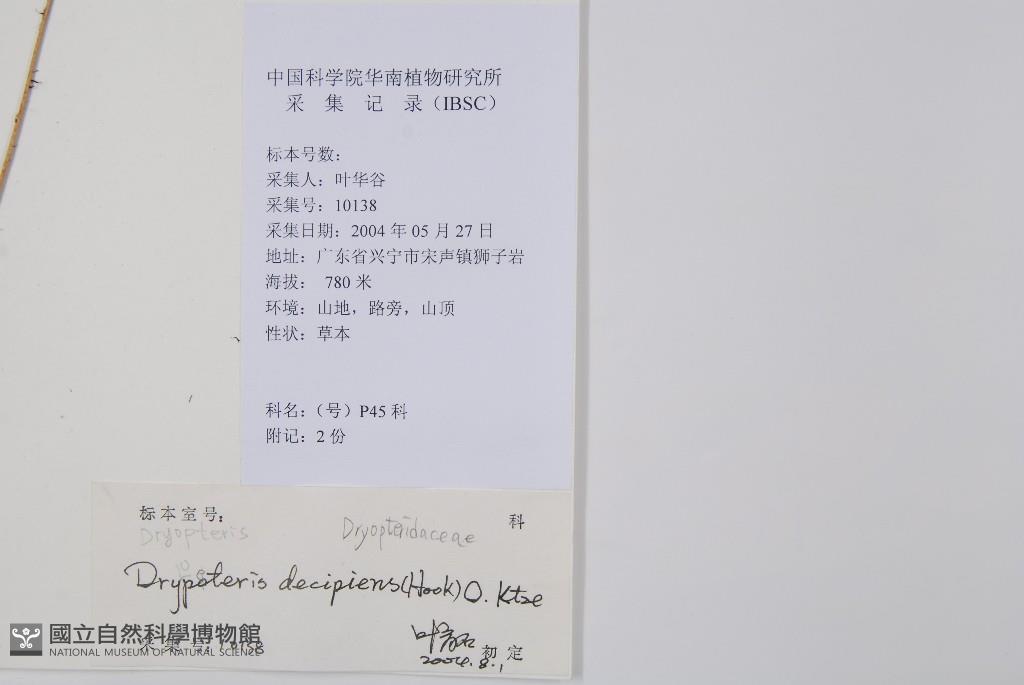 中国科学院华南植物研究所
采 集 记 录（IBSC）
标本号数：
采集人：叶华谷
采集号：10138
采集日期：2004 年 05 月 27 日
地址：广东省兴宁市宋声镇狮子岩
海拔： 780 米
环境：山地，路旁，山顶
性状：草本
科名：（号）P45 科
附记：2 份
标本室号：
Dryopteris Dryopteridaceae 科
Drypoteris decipiens (Hook) O. Ktze
采集号: 10138
2004.8.1 初定
國立自然科學博物館
NATIONAL MUSEUM OF NATURAL SCIENCE